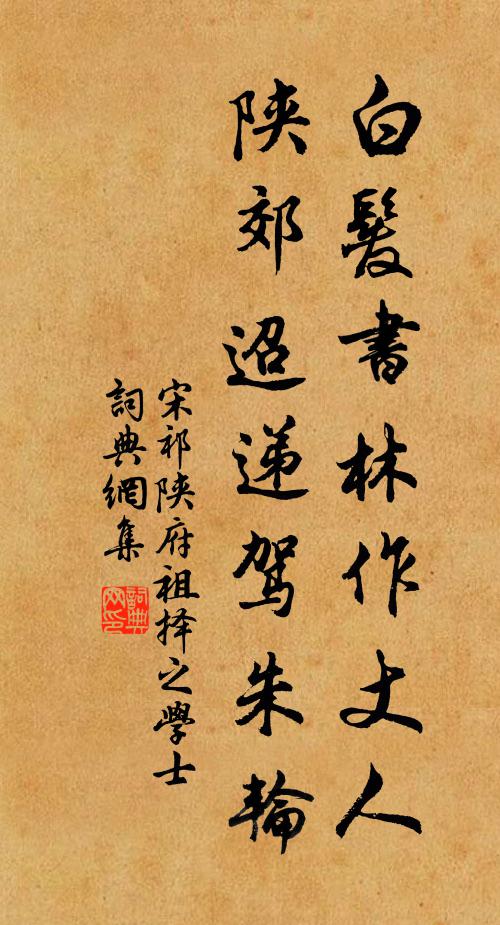 白髮書林作丈人
陝郊迢遞駕朱輪
宋祁陝府祖择之學士
詞典網集
詞典网印